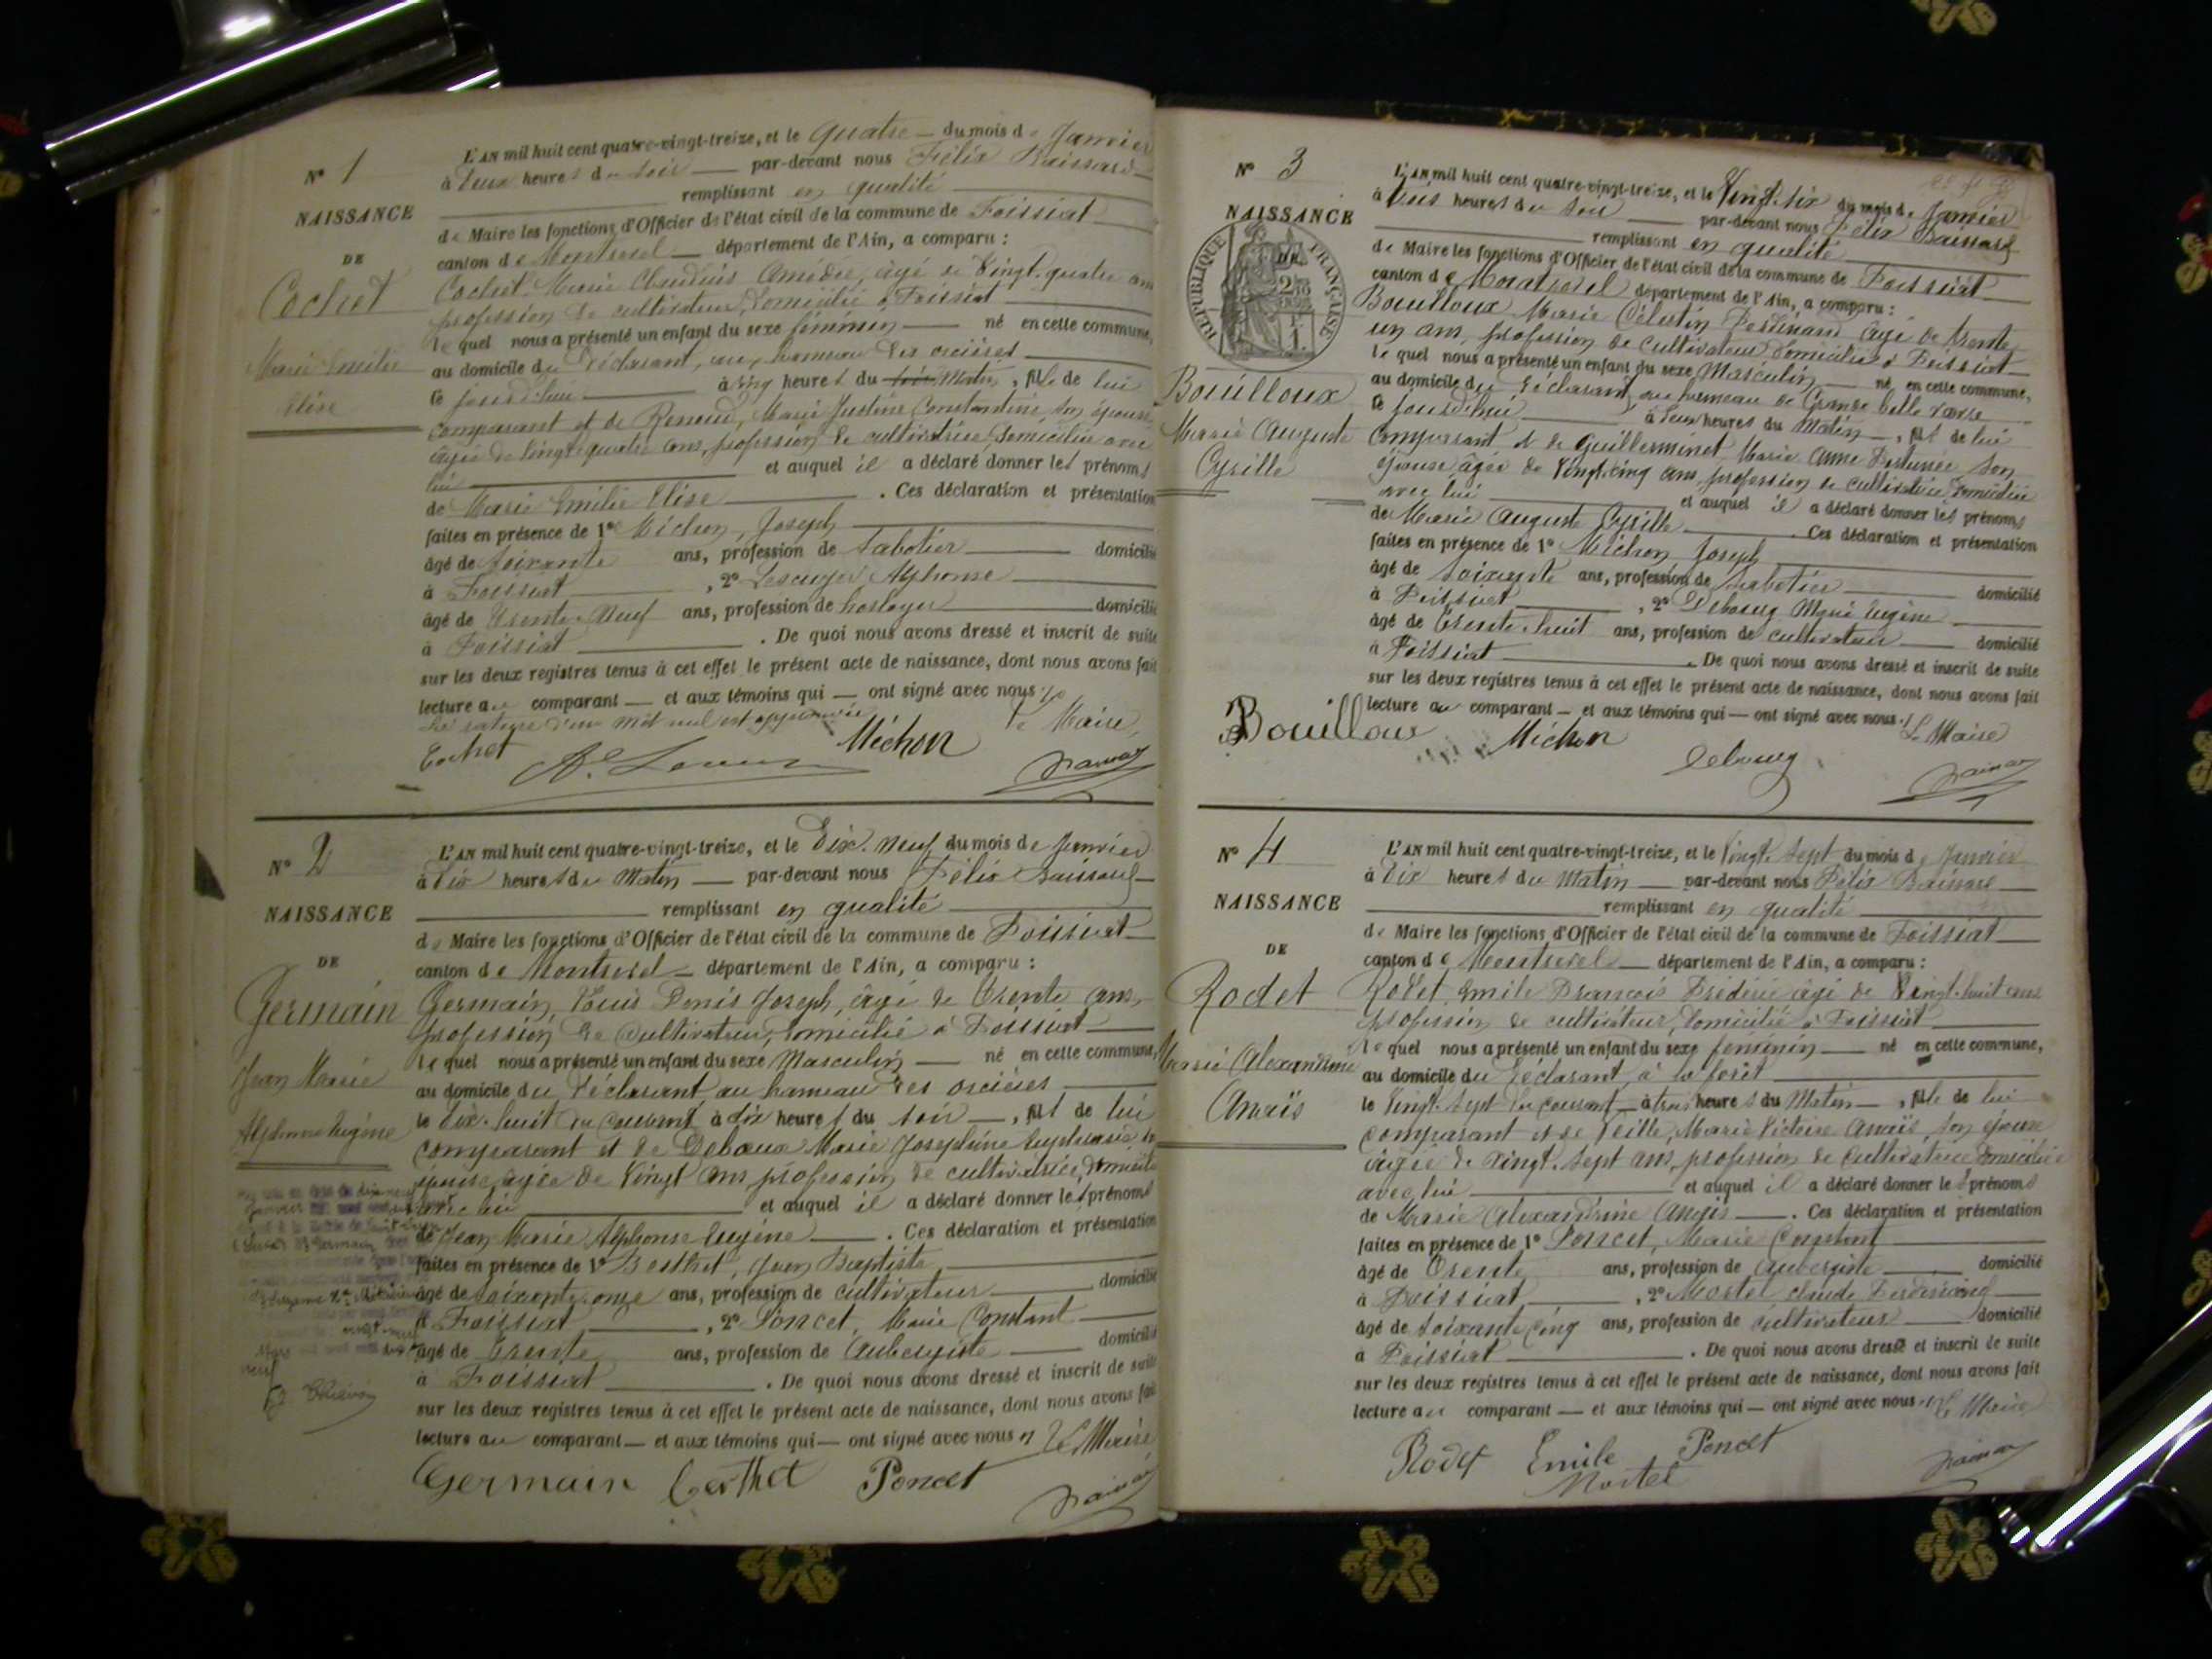 N° 1
NAISSANCE
DE
Cochet
Marie Emilie
Elise
L'AN mil huit cent quatre-vingt-treize, et le quatre du mois de Janvier
à deux heures du soir par-devant nous Félix
remplissant en qualité
de Maire les fonctions d'Officier de l'état civil de la commune de Foissiat
canton de Montrevel département de l'Ain, a comparu :
Cochet Marie Claudius Amédée, âgé de vingt-quatre ans
profession de cultivateur, domicilié à Foissiat
lequel nous a présenté un enfant du sexe féminin né en cette commune,
au domicile du déclarant, au hameau des
le jourd'hui à cinq heures du soir matin, fille de lui
comparant et de Renoud, Marie Justine Constantine, son épouse
âgée de vingt-quatre ans, profession de cultivatrice, domiciliée avec
lui et auquel il a déclaré donner les prénoms
de Marie Emilie Elise . Ces déclaration et présentation
faites en présence de 1° Michon, Joseph
âgé de soixante ans, profession de sabotier domicilié
à Foissiat , 2° Alphonse
âgé de trente-neuf ans, profession de horloger domicilié
à Foissiat . De quoi nous avons dressé et inscrit de suite
sur les deux registres tenus à cet effet le présent acte de naissance, dont nous avons fait
lecture au comparant et aux témoins qui ont signé avec nous
La rature d'un mot nul est approuvée Le Maire,
Cochet Michon
N° 2
NAISSANCE
DE
Germain
Jean Marie
Alphonse Eugène
L'AN mil huit cent quatre-vingt-treize, et le dix-neuf du mois de Janvier
à dix heures du matin par-devant nous Félix
remplissant en qualité
de Maire les fonctions d'Officier de l'état civil de la commune de Foissiat
canton de Montrevel département de l'Ain, a comparu :
Germain, Louis Denis Joseph, âgé de trente ans,
profession de cultivateur, domicilié à Foissiat
lequel nous a présenté un enfant du sexe masculin né en cette commune,
au domicile du déclarant au hameau des
le dix-huit du courant à dix heures du soir , fils de lui
comparant et de Marie Joséphine
épouse, âgée de vingt ans, profession de cultivatrice, domiciliée
avec lui et auquel il a déclaré donner les prénoms
de Jean Marie Alphonse Eugène . Ces déclaration et présentation
faites en présence de 1° Berthet, Jean Baptiste
âgé de soixante-onze ans, profession de cultivateur domicilié
à Foissiat , 2° Poncet, Marie Constant
âgé de trente ans, profession de aubergiste domicilié
à Foissiat . De quoi nous avons dressé et inscrit de suite
sur les deux registres tenus à cet effet le présent acte de naissance, dont nous avons fait
lecture au comparant et aux témoins qui ont signé avec nous Le Maire
Germain Berthet Poncet
N° 3
NAISSANCE
DE
RÉPUBLIQUE FRANÇAISE
Bouilloux
Marie Auguste
Cyrille
L'AN mil huit cent quatre-vingt-treize, et le vingt-six du mois de Janvier
à trois heures du soir par-devant nous Félix
remplissant en qualité
de Maire les fonctions d'Officier de l'état civil de la commune de Foissiat
canton de Montrevel département de l'Ain, a comparu :
Bouilloux Marie Célestin Ferdinand âgé de trente
un ans, profession de cultivateur domicilié à Foissiat
lequel nous a présenté un enfant du sexe masculin né en cette commune,
au domicile du déclarant, au hameau de Grande
le jourd'hui à deux heures du matin , fils de lui
comparant et de Guillerminet Marie Anne Fortunée son
épouse âgée de vingt-cinq ans, profession de cultivatrice domiciliée
avec lui et auquel il a déclaré donner les prénoms
de Marie Auguste Cyrille . Ces déclaration et présentation
faites en présence de 1° Michon Joseph
âgé de soixante ans, profession de sabotier domicilié
à Foissiat , 2° Debourg Marie Eugène
âgé de trente-huit ans, profession de cultivateur domicilié
à Foissiat . De quoi nous avons dressé et inscrit de suite
sur les deux registres tenus à cet effet le présent acte de naissance, dont nous avons fait
lecture au comparant et aux témoins qui ont signé avec nous Le Maire
Bouilloux Michon Debourg
N° 4
NAISSANCE
DE
Rodet
Marie Alexandrine
Anaïs
L'AN mil huit cent quatre-vingt-treize, et le vingt-sept du mois de Janvier
à dix heures du matin par-devant nous Félix
remplissant en qualité
de Maire les fonctions d'Officier de l'état civil de la commune de Foissiat
canton de Montrevel département de l'Ain, a comparu :
Rodet Emile François Frédéric âgé de vingt-huit ans
profession de cultivateur, domicilié à Foissiat
lequel nous a présenté un enfant du sexe féminin né en cette commune,
au domicile du déclarant, à la forêt
le vingt-sept du courant à trois heures du matin , fille de lui
comparant et de Marie Victoire Anaïs, son épouse
âgée de vingt-sept ans, profession de cultivatrice domiciliée
avec lui et auquel il a déclaré donner les prénoms
de Marie Alexandrine Anaïs . Ces déclaration et présentation
faites en présence de 1° Poncet, Marie Constant
âgé de trente ans, profession de aubergiste domicilié
à Foissiat , 2° Mortel Claude
âgé de soixante cinq ans, profession de cultivateur domicilié
à Foissiat . De quoi nous avons dressé et inscrit de suite
sur les deux registres tenus à cet effet le présent acte de naissance, dont nous avons fait
lecture au comparant et aux témoins qui ont signé avec nous Le Maire
Rodet Emile Poncet
Mortel